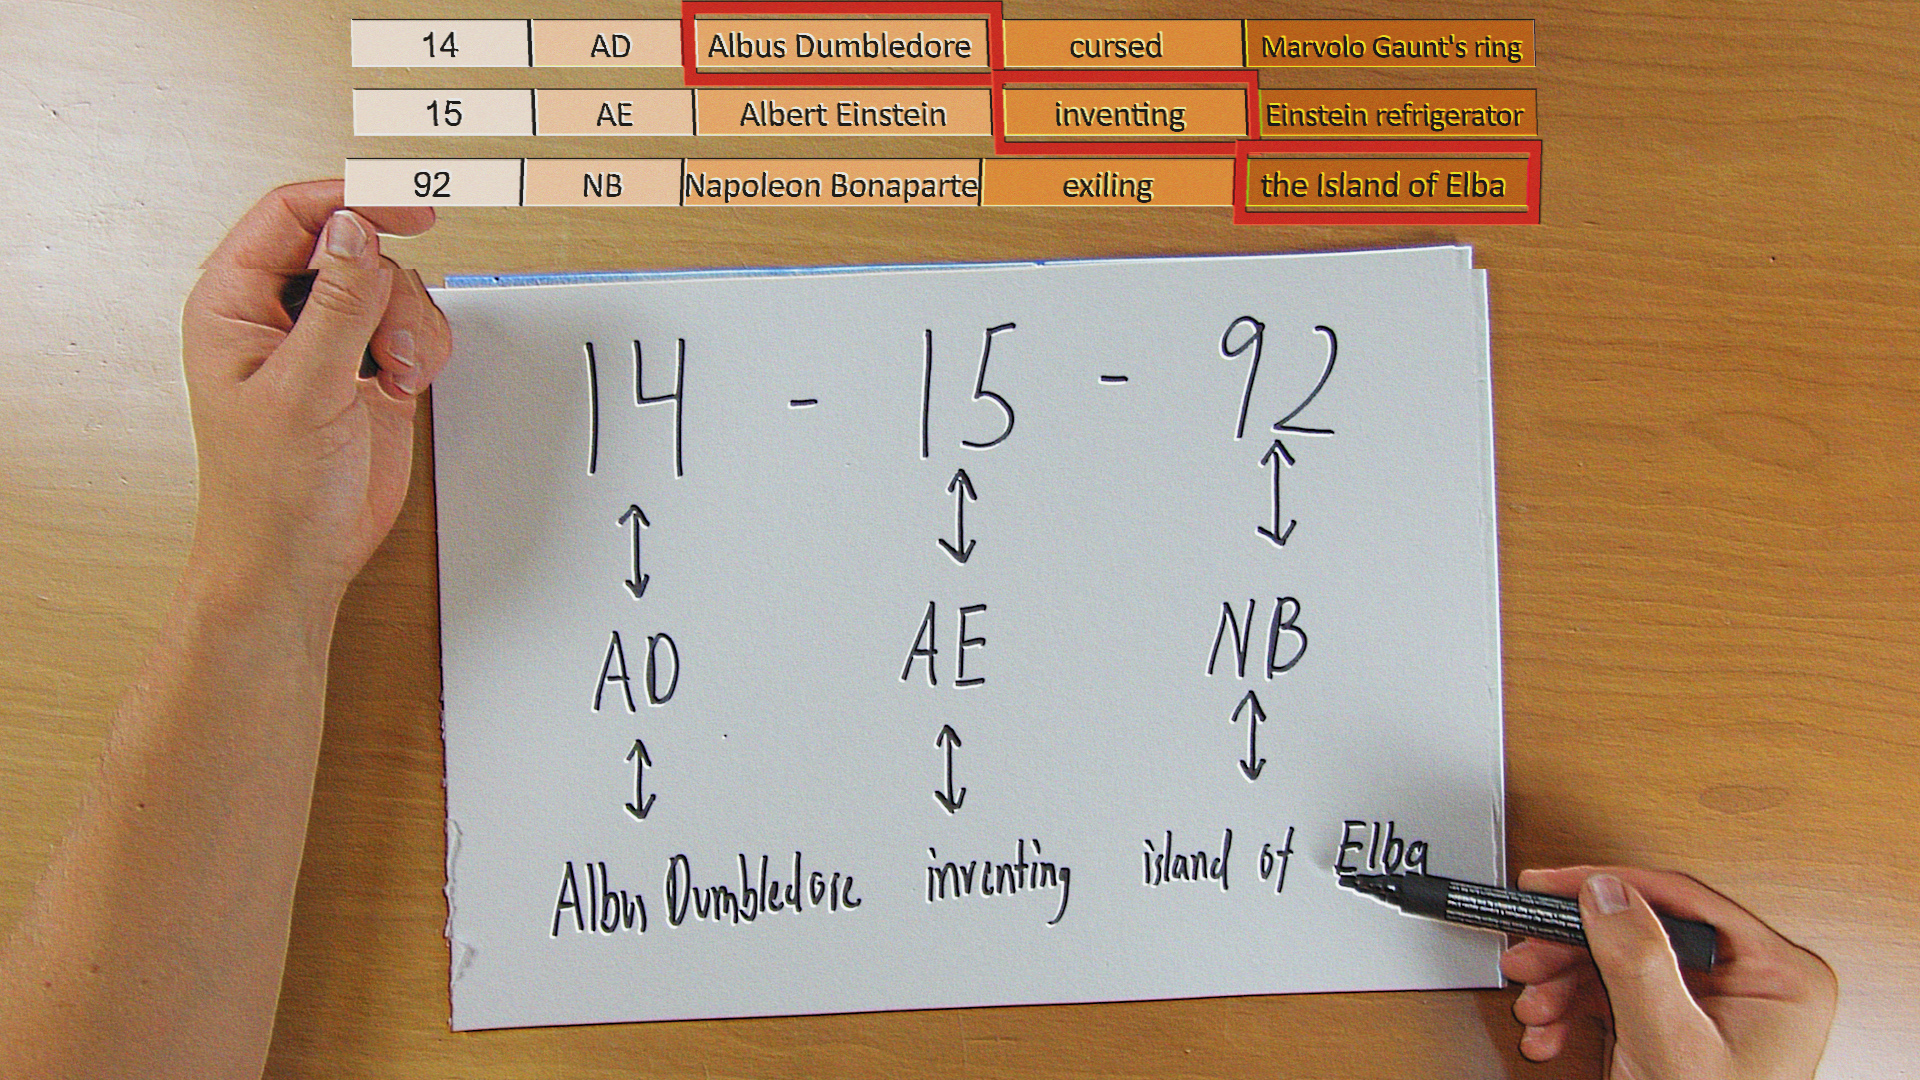 14 AD Albus Dumbledore cursed Marvolo Gaunt's ring
15 AE Albert Einstein inventing Einstein refrigerator
92 NB Napoleon Bonaparte exiling the Island of Elba
14 - 15 - 92
AD AE NB
Albus Dumbledore inventing island of Elba